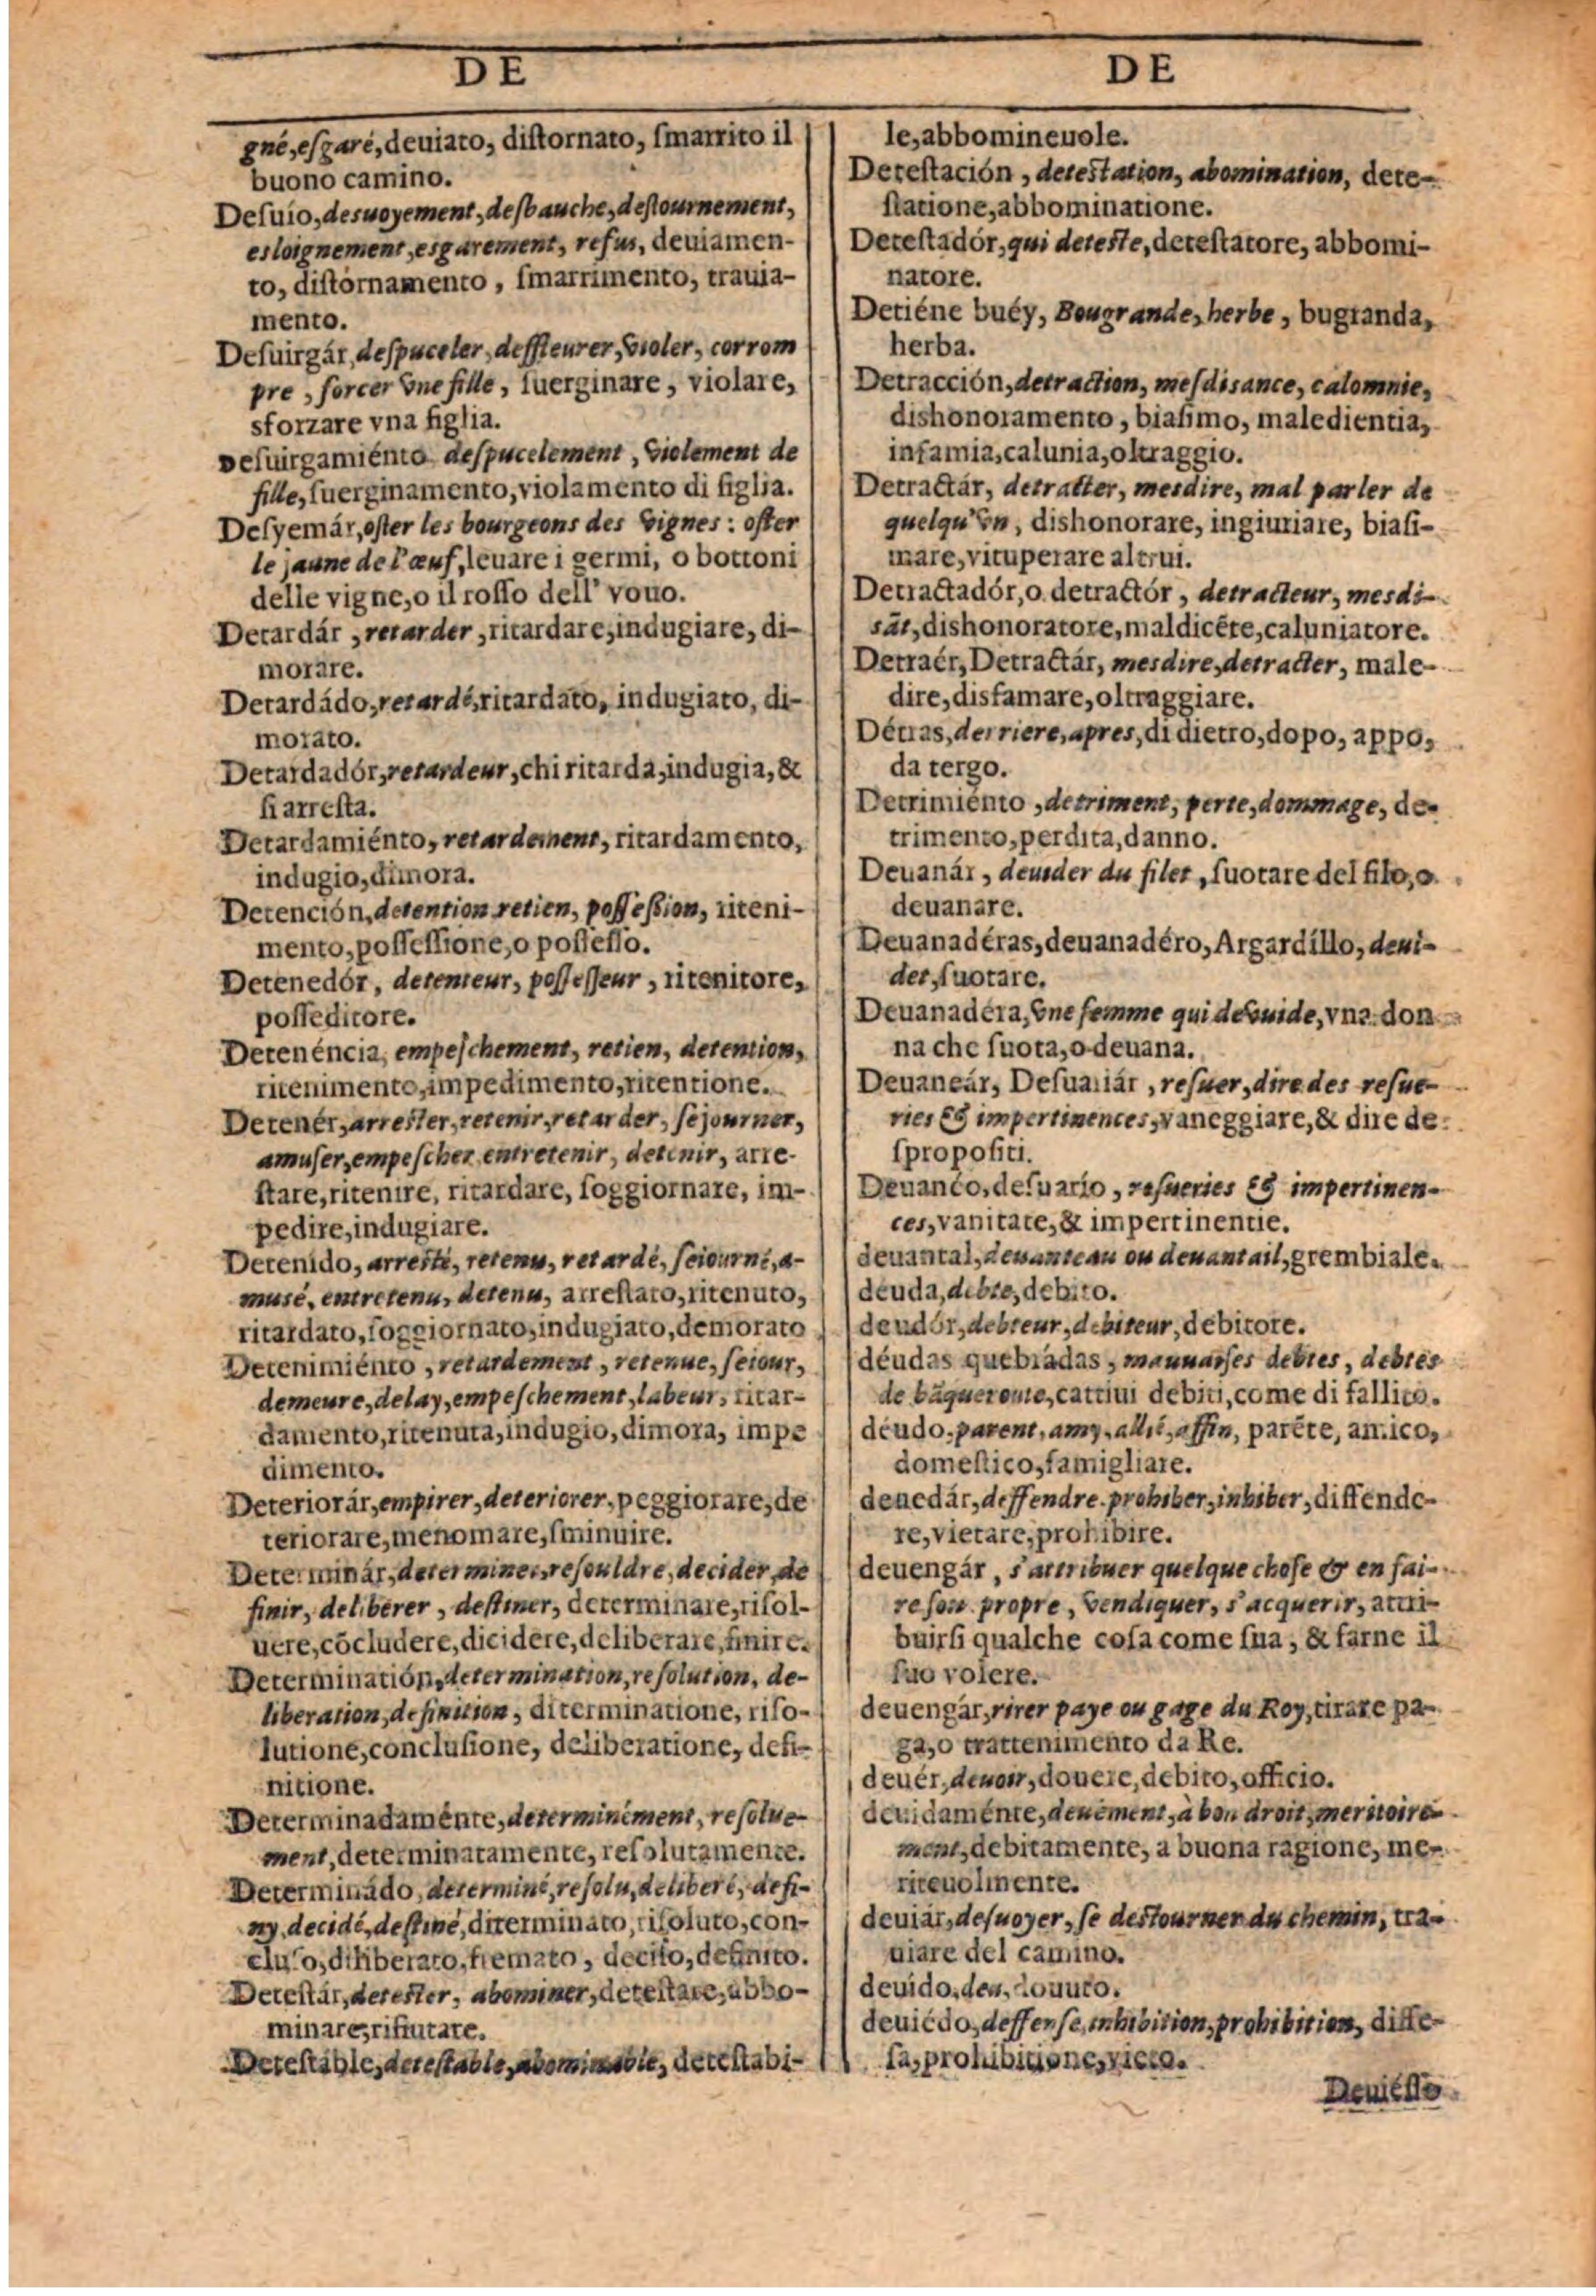 DE
DE
gné,esgaré,deuiato, diſtornato, ſmarrito il
buono camino.
Deſuío,desuoyement,desbauche,deſtournement,
esloignement,esgarement, refus, deuiamen-
to, diſtornamento, ſmarrimento, trauia-
mento.
Deſuirgár,deſpuceler,deffleurer,violer, corrom
pre , forcer vne fille, ſuerginare, violare,
sforzare vna figlia.
Deſuirgamiénto deſpucelement, violement de
fille,ſuerginamento,violamento di figlia.
Deſyemár,oſter les bourgeons des vignes: oſter
le jaune de l'œuf,leuare i germi, o bottoni
delle vigne,o il roſſo dell' vouo.
Detardár ,retarder ,ritardare,indugiare, di-
morare.
Detardádo,retardé,ritardato, indugiato, di-
morato.
Detardadór,retardeur,chi ritarda,indugia,&
ſi arreſta.
Detardamiénto,retardement,ritardamento,
indugio,dimora.
Detención,detention retien, poſſeſſion, riteni-
mento,poſſeſſione,o poſſeſſo.
Detenedór, detenteur, poſſeſſeur , ritenitore,
poſſeditore.
Detenéncia, empeſchement, retien, detention,
ritenimento,impedimento,ritentione.
Detenér,arreſter,retenir,retarder, ſejourner,
amuſer,empeſcher entretenir, detenir, arre-
ſtare,ritenire, ritardare, ſoggiornare, im-
pedire,indugiare.
Detenído,arreſté, retenu, retardé, ſeiourné,a-
musé, entretenu, detenu, arreſtato,ritenuto,
ritardato,ſoggiornato,indugiato,demorato
Detenimiénto ,retardement , retenue, ſeiour,
demeure,delay,empeſchement,labeur, ritar-
damento,ritenuta,indugio,dimora, impe
dimento.
Deteriorár,empirer,deteriorer,peggiorare,de
teriorare,menomare,ſminuire.
Determinár,determiner,reſouldre, decider,de
finir, deliberer , deſtiner, determinare,riſol-
uere,cōcludere,dicidere,deliberare,finire.
Determinatión,determination,reſolution, de-
liberation,definition , diterminatione, riſo-
lutione,concluſione, deliberatione, defi-
nitione.
Determinadaménte,determinément, reſolue-
ment,determinatamente, reſolutamente.
Determinádo, determiné,reſolu,deliberé, defi-
ny,decidé,deſtiné,diterminato,riſoluto,con-
cluſo,diliberato,fremato , deciſo,definito.
Deteſtár,deteſter, abominer,deteſtare,abbo-
minare,rifiutare.
Deteſtáble,deteſtable,abominable, deteſtabi-
le,abbomineuole.
Deteſtación , deteſtation, abomination, dete-
ſtatione,abbominatione.
Deteſtadór,qui deteſte,deteſtatore, abbomi-
natore.
Detiéne buéy, Bougrande,herbe , bugranda,
herba.
Detracción,detraction, meſdisance, calomnie,
dishonoramento , biaſimo, maledientia,
infamia,calunia,oltraggio.
Detractár, detracter, mesdire, mal parler de
quelqu'vn, dishonorare, ingiuriare, biaſi-
mare,vituperare altrui.
Detractadór,o detractór , detracteur, mesdi-
sāt,dishonoratore,maldicēte,caluniatore.
Detraér,Detractár, mesdire,detracter, male-
dire,disfamare,oltraggiare.
Détras,derriere,apres,di dietro,dopo, appo,
da tergo.
Detrimiénto ,detriment, perte,dommage, de-
trimento,perdita,danno.
Deuanár , deuider du filet ,ſuotare del filo,o
deuanare.
Deuanadéras,deuanadéro,Argardíllo,deui-
det,ſuotare.
Deuanadéra,vne femme qui deuuide,vna don
na che ſuota,o deuana.
Deuaneár, Deſuariár , reſuer,dire des reſue-
ries & impertinences,vaneggiare,& dire de
ſpropoſiti.
Deuanéo,deſuarío , reſueries & impertinen-
ces,vanitate,& impertinentie.
deuantal,deuanteau ou deuantail,grembiale.
déuda,debte,debito.
deudór,debteur,debiteur,debitore.
déudas quebrádas , mauuaiſes debtes, debtes
de bāqueroute,cattiui debiti,come di fallito.
déudo,parent,amy,allié,affin, parēte, amico,
domeſtico,famigliare.
deuedár,deffendre prohiber,inhiber,diffende-
re,vietare,prohibire.
deuengár , s'attribuer quelque choſe & en fai-
re ſon propre , vendiquer, s'acquerir, attri-
buirſi qualche coſa come ſua, & farne il
ſuo volere.
deuengár,tirer paye ou gage du Roy,tirare pa-
ga,o trattenimento da Re.
deuér,deuoir,douere,debito,officio.
deuidaménte,deuëment,à bon droit,meritoire-
ment,debitamente, a buona ragione, me-
riteuolmente.
deuiár,deſuoyer,ſe deſtourner du chemin, tra-
uiare del camino.
deuído,deu, douuto.
deuiédo,deffenſe,inhibition,prohibition, diffe-
ſa,prohibitione,vieto.
Deuiéſſo